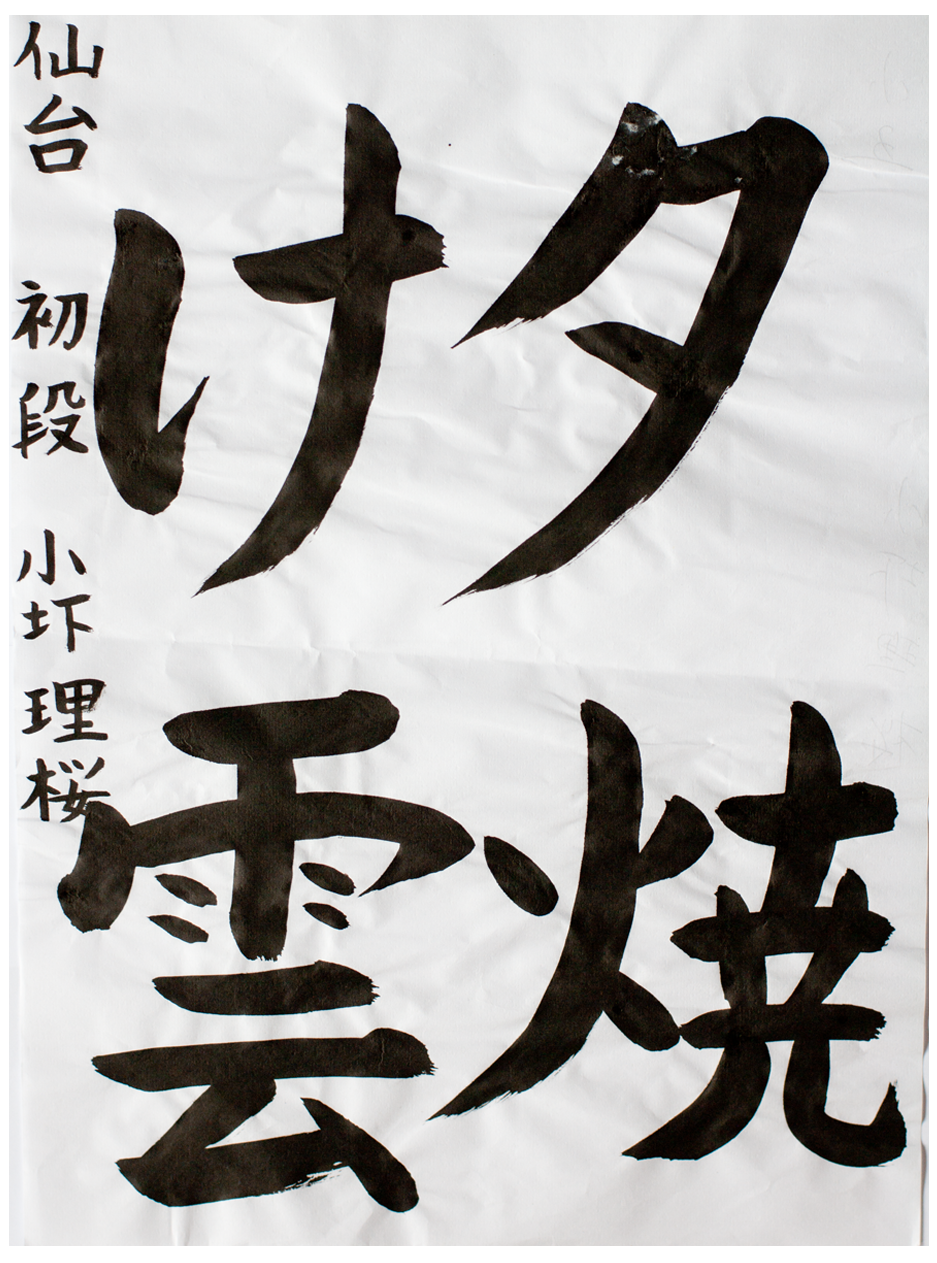 夕焼
け雲
仙台 初段 小圷 理桜